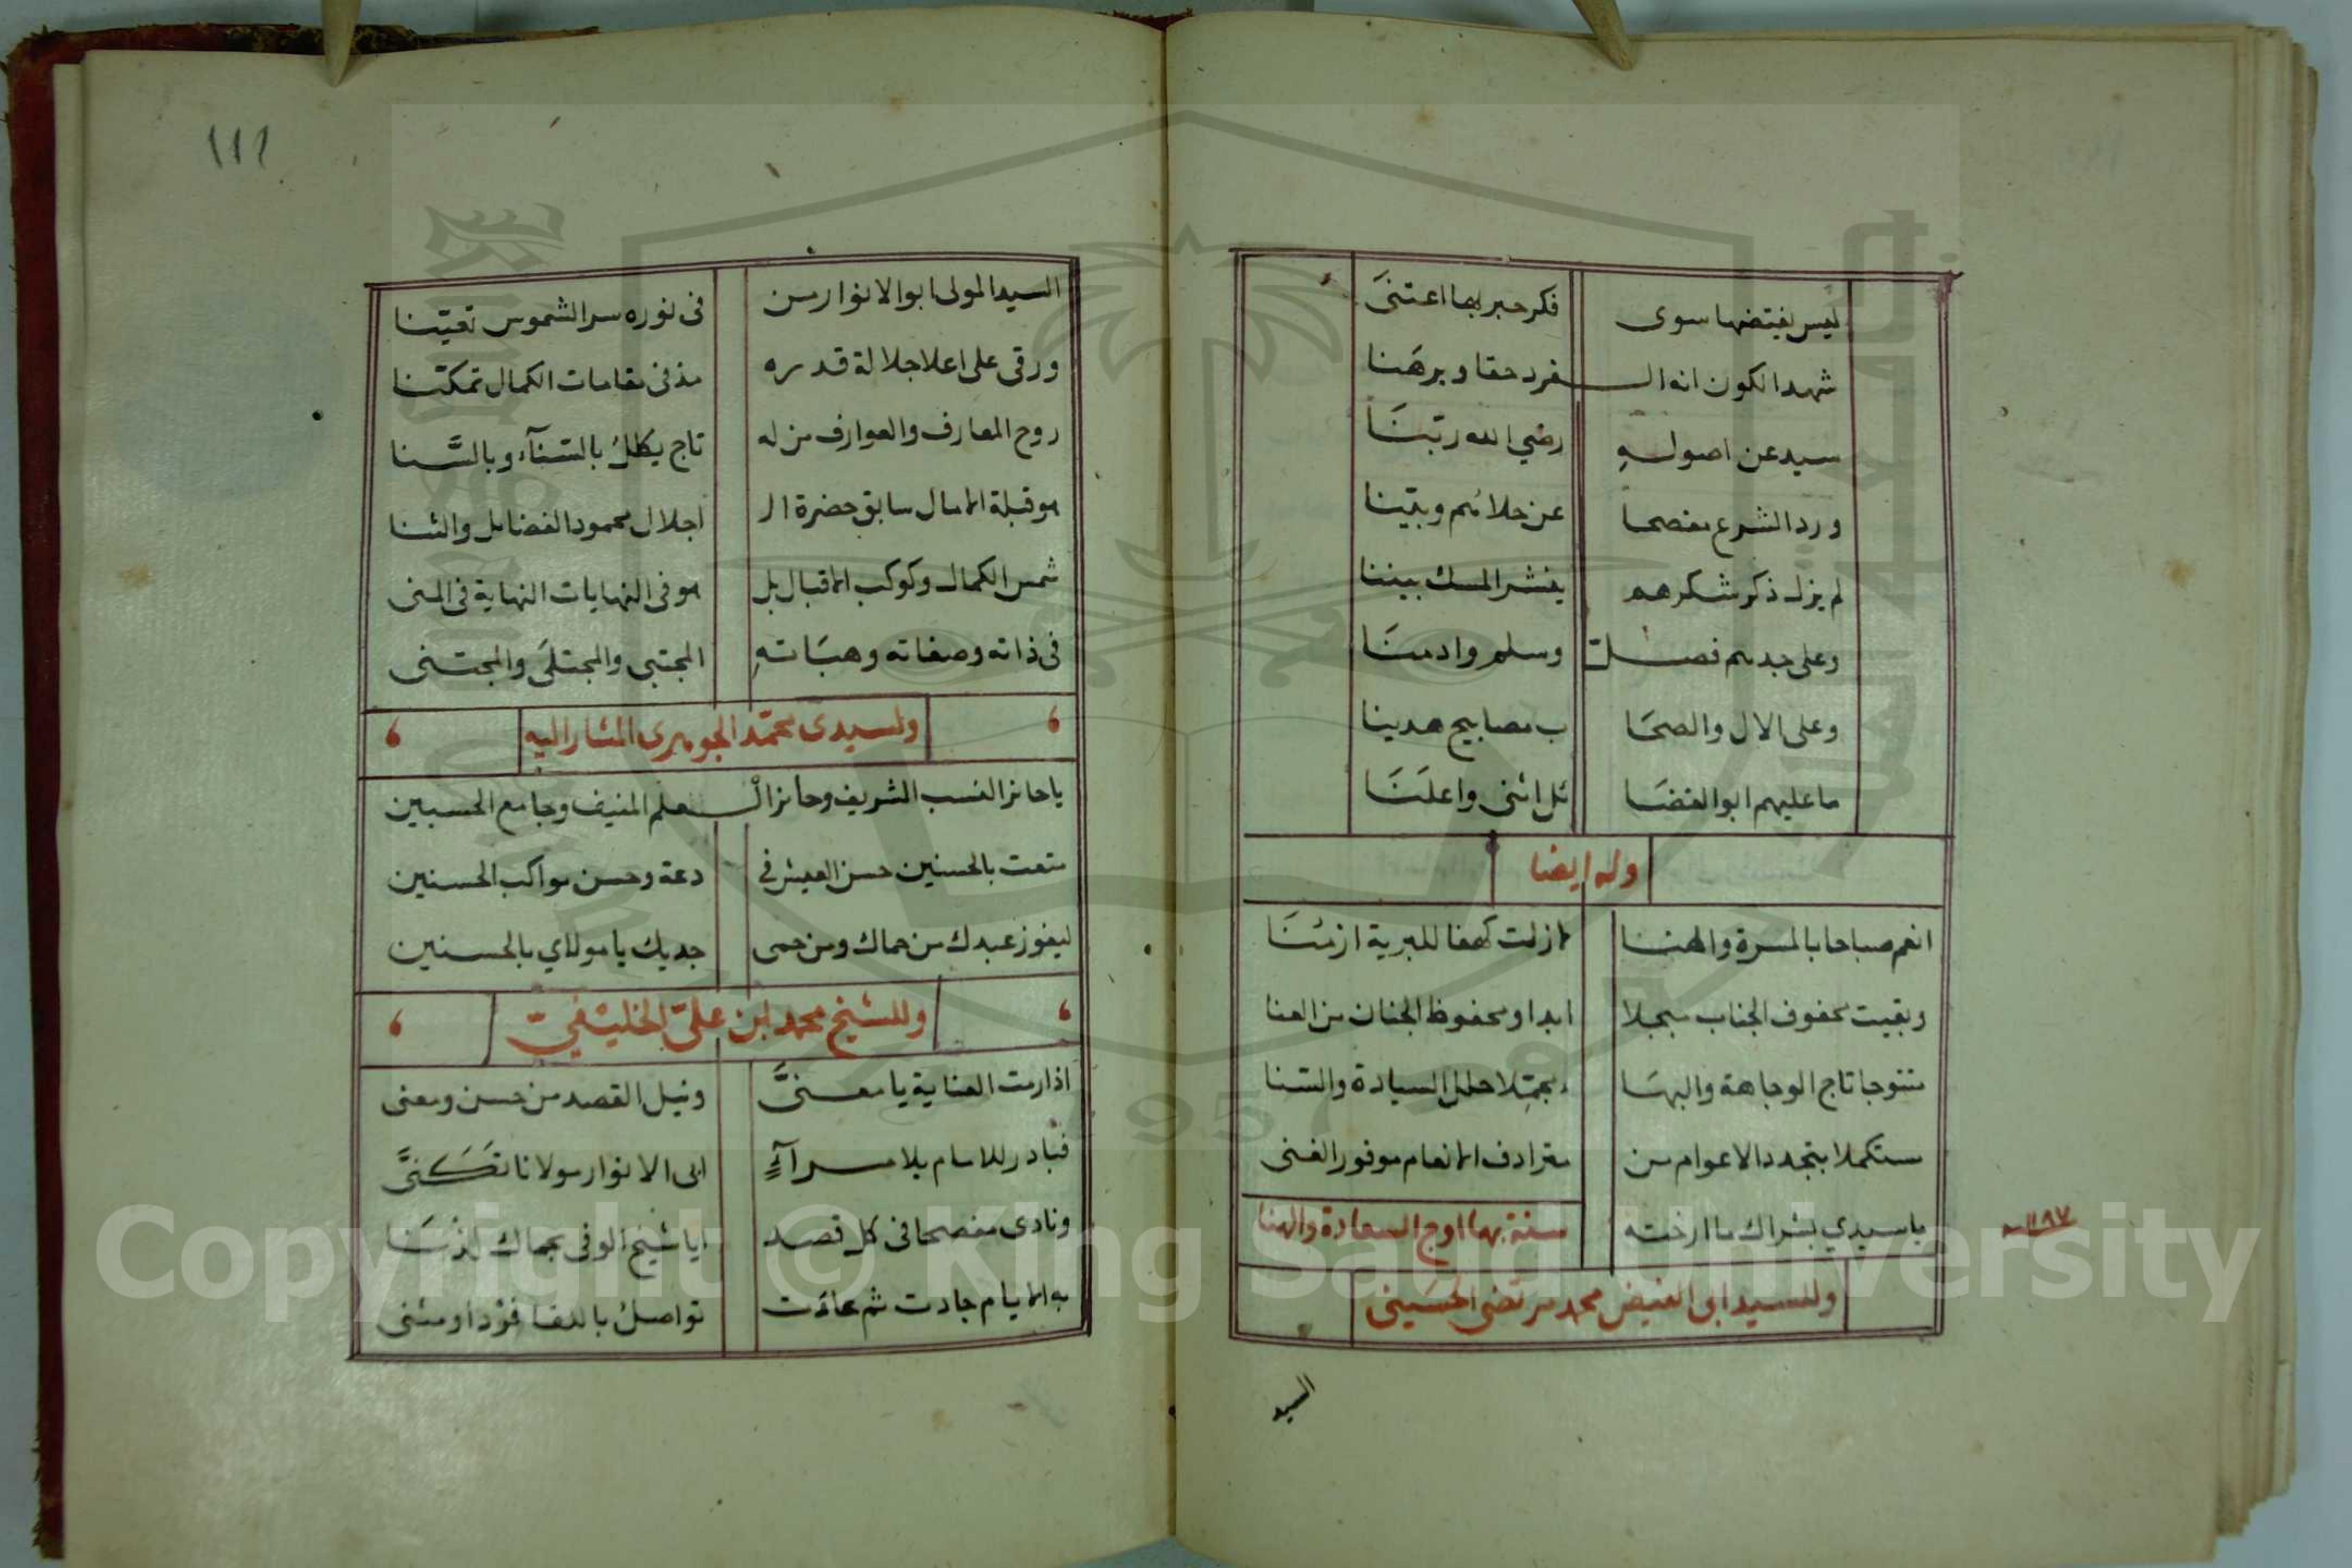 ليس يفتضها سوى فكر حبر بها اعتنى
شهد الكون انه الـ ـفرد حقا وبرهنا
سيد عن اصوله رضي الله ربنا
ورد الشرع مفصحا عن حلاهم وبينا
لم يزل ذكر شكرهم ينشر المسك بيننا
وعلى جدهم فصل وسلم وادمنا
وعلى الال والصحا ب مصابيح هدينا
ما عليهم ابو الفضا ئل اثنى واعلنا
وله ايضا
انعم صباحا بالمسرة والهنا لا زلت كهفا للبرية ازمنا
وبقيت محفوف الجناب مبجلا ابدا ومحفوظ الجنان من العنا
متتوجا تاج الوجاهة والبها بمجتلا حلل السيادة والسنا
مستكملا بتجدد الاعوام من مترادف الانعام موفور الغنى
يا سيدي بشراك ما ارخته سنة بها اوج السعادة والهنا
سنة ١١٩٧
وللسيد ابى الفيض محمد مرتضى الحسينى
السيد
١١١
السيد المولى ابو الانوار من فى نوره سر الشموس تعينا
ورقى على اعلا جلالة قدره مذ فى مقامات الكمال تمكنا
روح المعارف والعوارف من له تاج يكلل بالسنآء وبالسنا
هو قبلة الامال سابق حضرة الـ اجلال محمود الفضايل والثنا
شمس الكمال وكوكب الاقبال بل هو فى النهايات النهاية فى المنى
فى ذاته وصفاته وهباته المجتبى والمجتلى والمجتنى
ولسيدى محمد الجوهرى المشار اليه
يا حائز النسب الشريف وحائز الـ ـعلم المنيف وجامع الحسبين
متعت بالحسنين حسن العيش فى دعة وحسن مواكب الحسنين
ليفوز عبدك من حماك ومن حمى جديك يا مولاي بالحسنين
وللشيخ محمد ابن علي الخليفي
اذا رمت العناية يا معنى ونيل القصد من حسن ومعنى
فبادر للامام بلا مرآء ابى الانوار مولانا تكنى
ونادى مفصحا فى كل قصد ايا شيخ الوفى بجماك لذنا
به الايام جادت ثم عادت تواصل باللقا فردا ومثنى